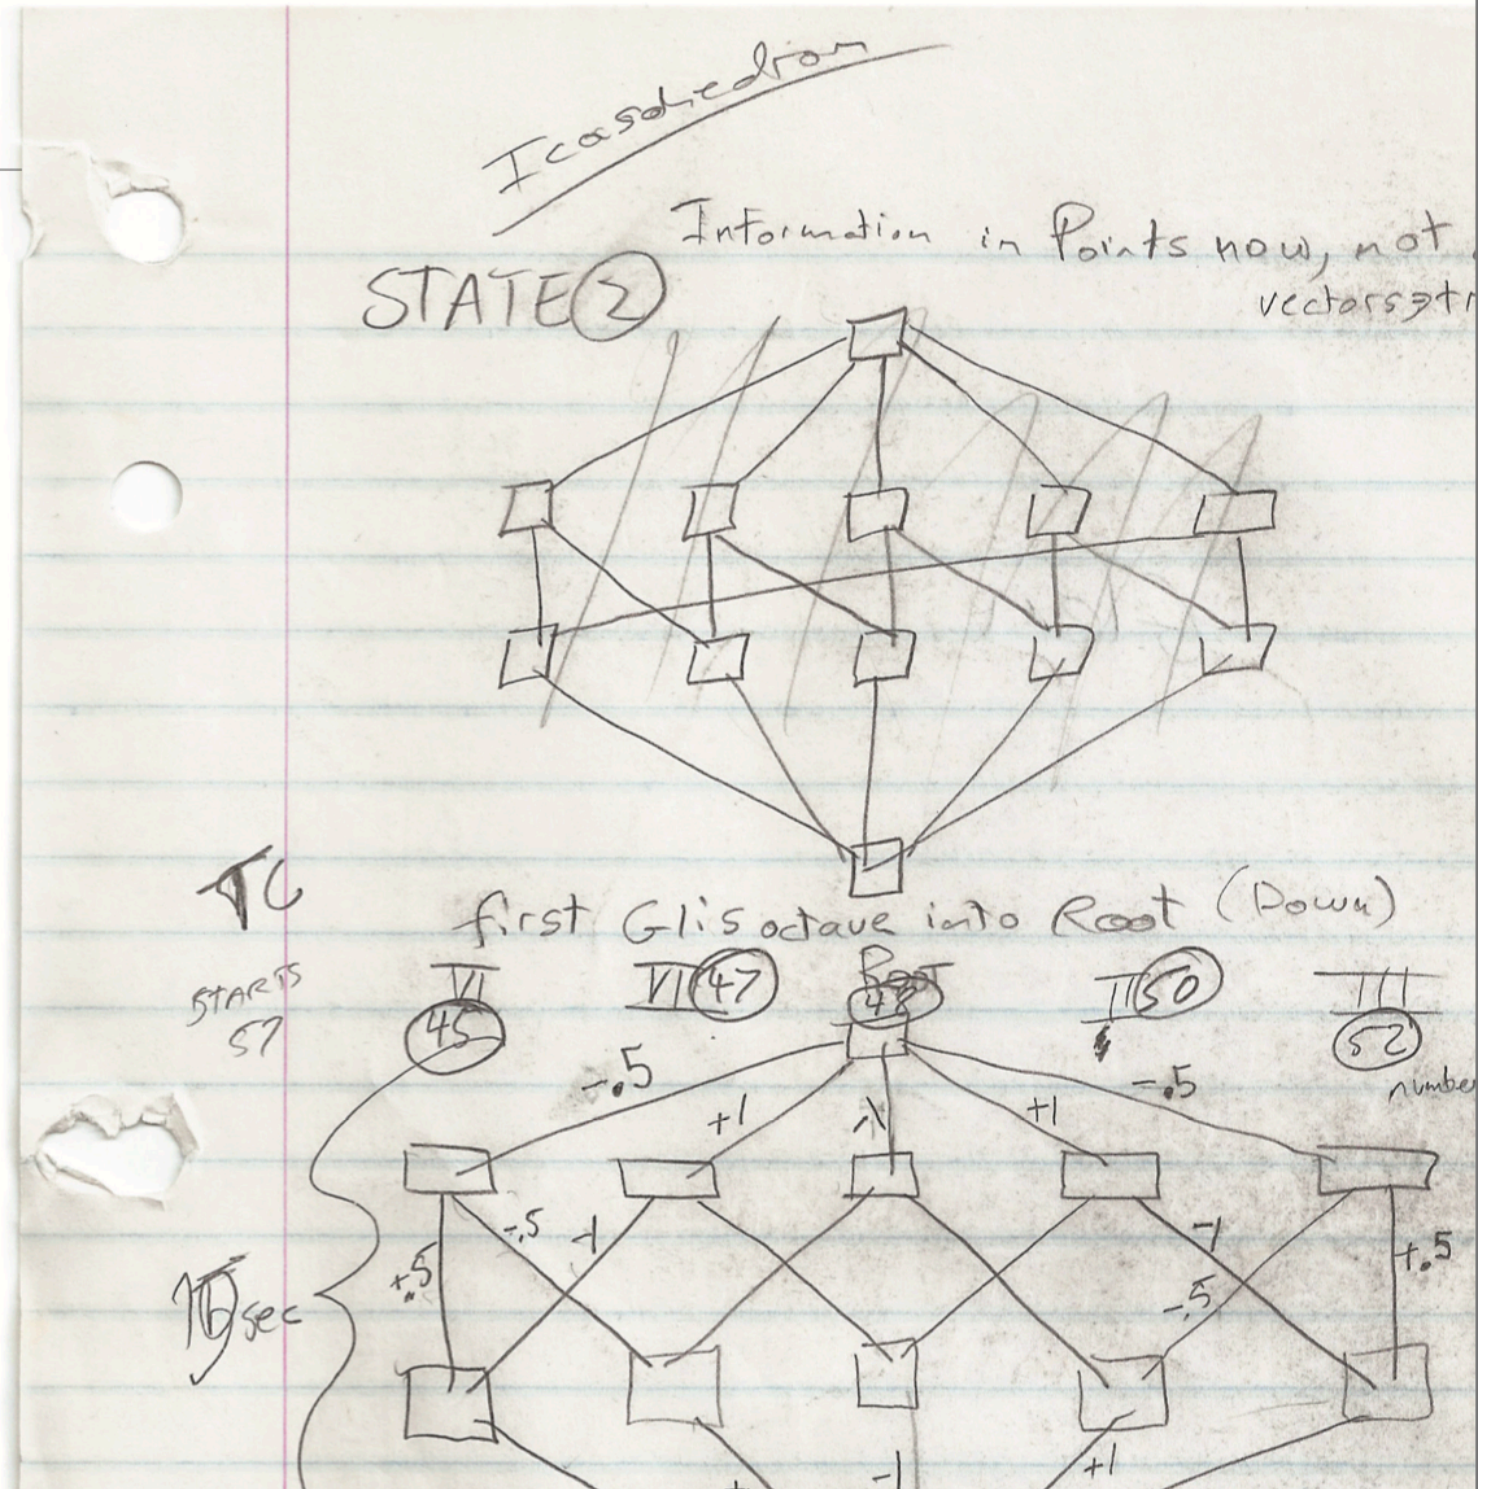 Icasohedron
Information in Points now, not
STATE 2
first Glis octave into Root (Down)
STARTS
57
VI
45
VII 47
Root
48
II 50
III
52
-.5
-.5
number
+1
+1
-.5
-1
-1
+.5
+.5
-.5
sec
-1
+1